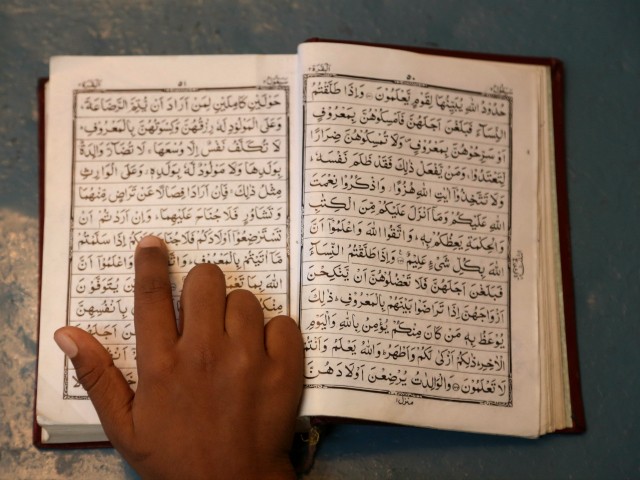 البقرة ٢
٥٠
حُدُوْدُ اللهِ يُبَيِّنُهَا لِقَوْمٍ يَّعْلَمُوْنَ وَاِذَا طَلَّقْتُمُ
النِّسَآءَ فَبَلَغْنَ اَجَلَهُنَّ فَاَمْسِكُوْهُنَّ بِمَعْرُوْفٍ
اَوْ سَرِّحُوْهُنَّ بِمَعْرُوْفٍ وَّلَا تُمْسِكُوْهُنَّ ضِرَارًا
لِّتَعْتَدُوْا وَمَنْ يَّفْعَلْ ذٰلِكَ فَقَدْ ظَلَمَ نَفْسَهٗ
وَلَا تَتَّخِذُوْٓا اٰيٰتِ اللهِ هُزُوًا وَّاذْكُرُوْا نِعْمَتَ
اللهِ عَلَيْكُمْ وَمَآ اَنْزَلَ عَلَيْكُمْ مِّنَ الْكِتٰبِ
وَالْحِكْمَةِ يَعِظُكُمْ بِهٖ وَاتَّقُوا اللهَ وَاعْلَمُوْٓا اَنَّ
اللهَ بِكُلِّ شَىْءٍ عَلِيْمٌ وَاِذَا طَلَّقْتُمُ النِّسَآءَ
فَبَلَغْنَ اَجَلَهُنَّ فَلَا تَعْضُلُوْهُنَّ اَنْ يَّنْكِحْنَ
اَزْوَاجَهُنَّ اِذَا تَرَاضَوْا بَيْنَهُمْ بِالْمَعْرُوْفِ ذٰلِكَ
يُوْعَظُ بِهٖ مَنْ كَانَ مِنْكُمْ يُؤْمِنُ بِاللهِ وَالْيَوْمِ
الْاٰخِرِ ذٰلِكُمْ اَزْكٰى لَكُمْ وَاَطْهَرُ وَاللهُ يَعْلَمُ وَاَنْتُمْ
لَا تَعْلَمُوْنَ وَالْوَالِدٰتُ يُرْضِعْنَ اَوْلَادَهُنَّ
منزل
٥١
البقرة ٢
حَوْلَيْنِ كَامِلَيْنِ لِمَنْ اَرَادَ اَنْ يُّتِمَّ الرَّضَاعَةَ
وَعَلَى الْمَوْلُوْدِ لَهٗ رِزْقُهُنَّ وَكِسْوَتُهُنَّ بِالْمَعْرُوْفِ
لَا تُكَلَّفُ نَفْسٌ اِلَّا وُسْعَهَا لَا تُضَآرَّ وَالِدَةٌۢ
بِوَلَدِهَا وَلَا مَوْلُوْدٌ لَّهٗ بِوَلَدِهٖ وَعَلَى الْوَارِثِ
مِثْلُ ذٰلِكَ فَاِنْ اَرَادَا فِصَالًا عَنْ تَرَاضٍ مِّنْهُمَا
وَ تَشَاوُرٍ فَلَا جُنَاحَ عَلَيْهِمَا وَاِنْ اَرَدْتُّمْ اَنْ
تَسْتَرْضِعُوْٓا اَوْلَادَكُمْ فَلَا جُنَاحَ عَلَيْكُمْ اِذَا سَلَّمْتُمْ
مَّآ اٰتَيْتُمْ بِالْمَعْرُوْفِ وَاعْلَمُوْٓا اَنَّ
اللهَ بِمَا يُتَوَفَّوْنَ
مِنْكُمْ بِاَنْفُسِهِنَّ
اَجَلَهُنَّ